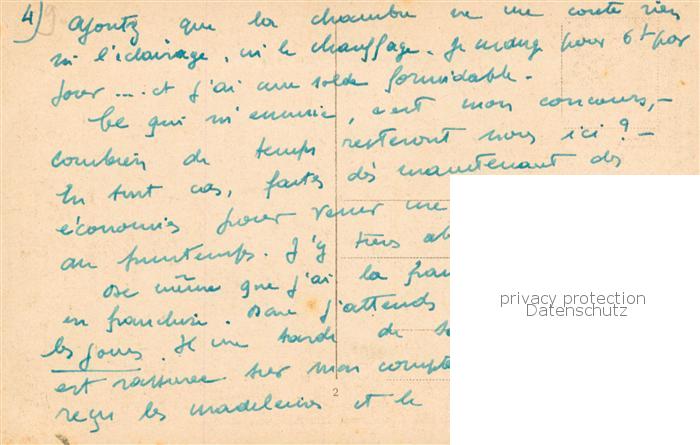 4) Ajoutez que la chambre ne me coute rien
ni l'éclairage, ni le chauffage. Je mange pour 6f par
jour .... et j'ai une solde formidable.
Ce qui m'ennuie, c'est mon concours,
combien de temps resterons nous ici ?
En tout cas, faites dès maintenant des
économies pour venir me
au printemps. J'y tiens
même que j'ai la fran
en franchise. J'attends
les jours. Il me tarde de
est rassurée sur mon compte
reçu les madeleines et le
2
privacy protection
Datenschutz